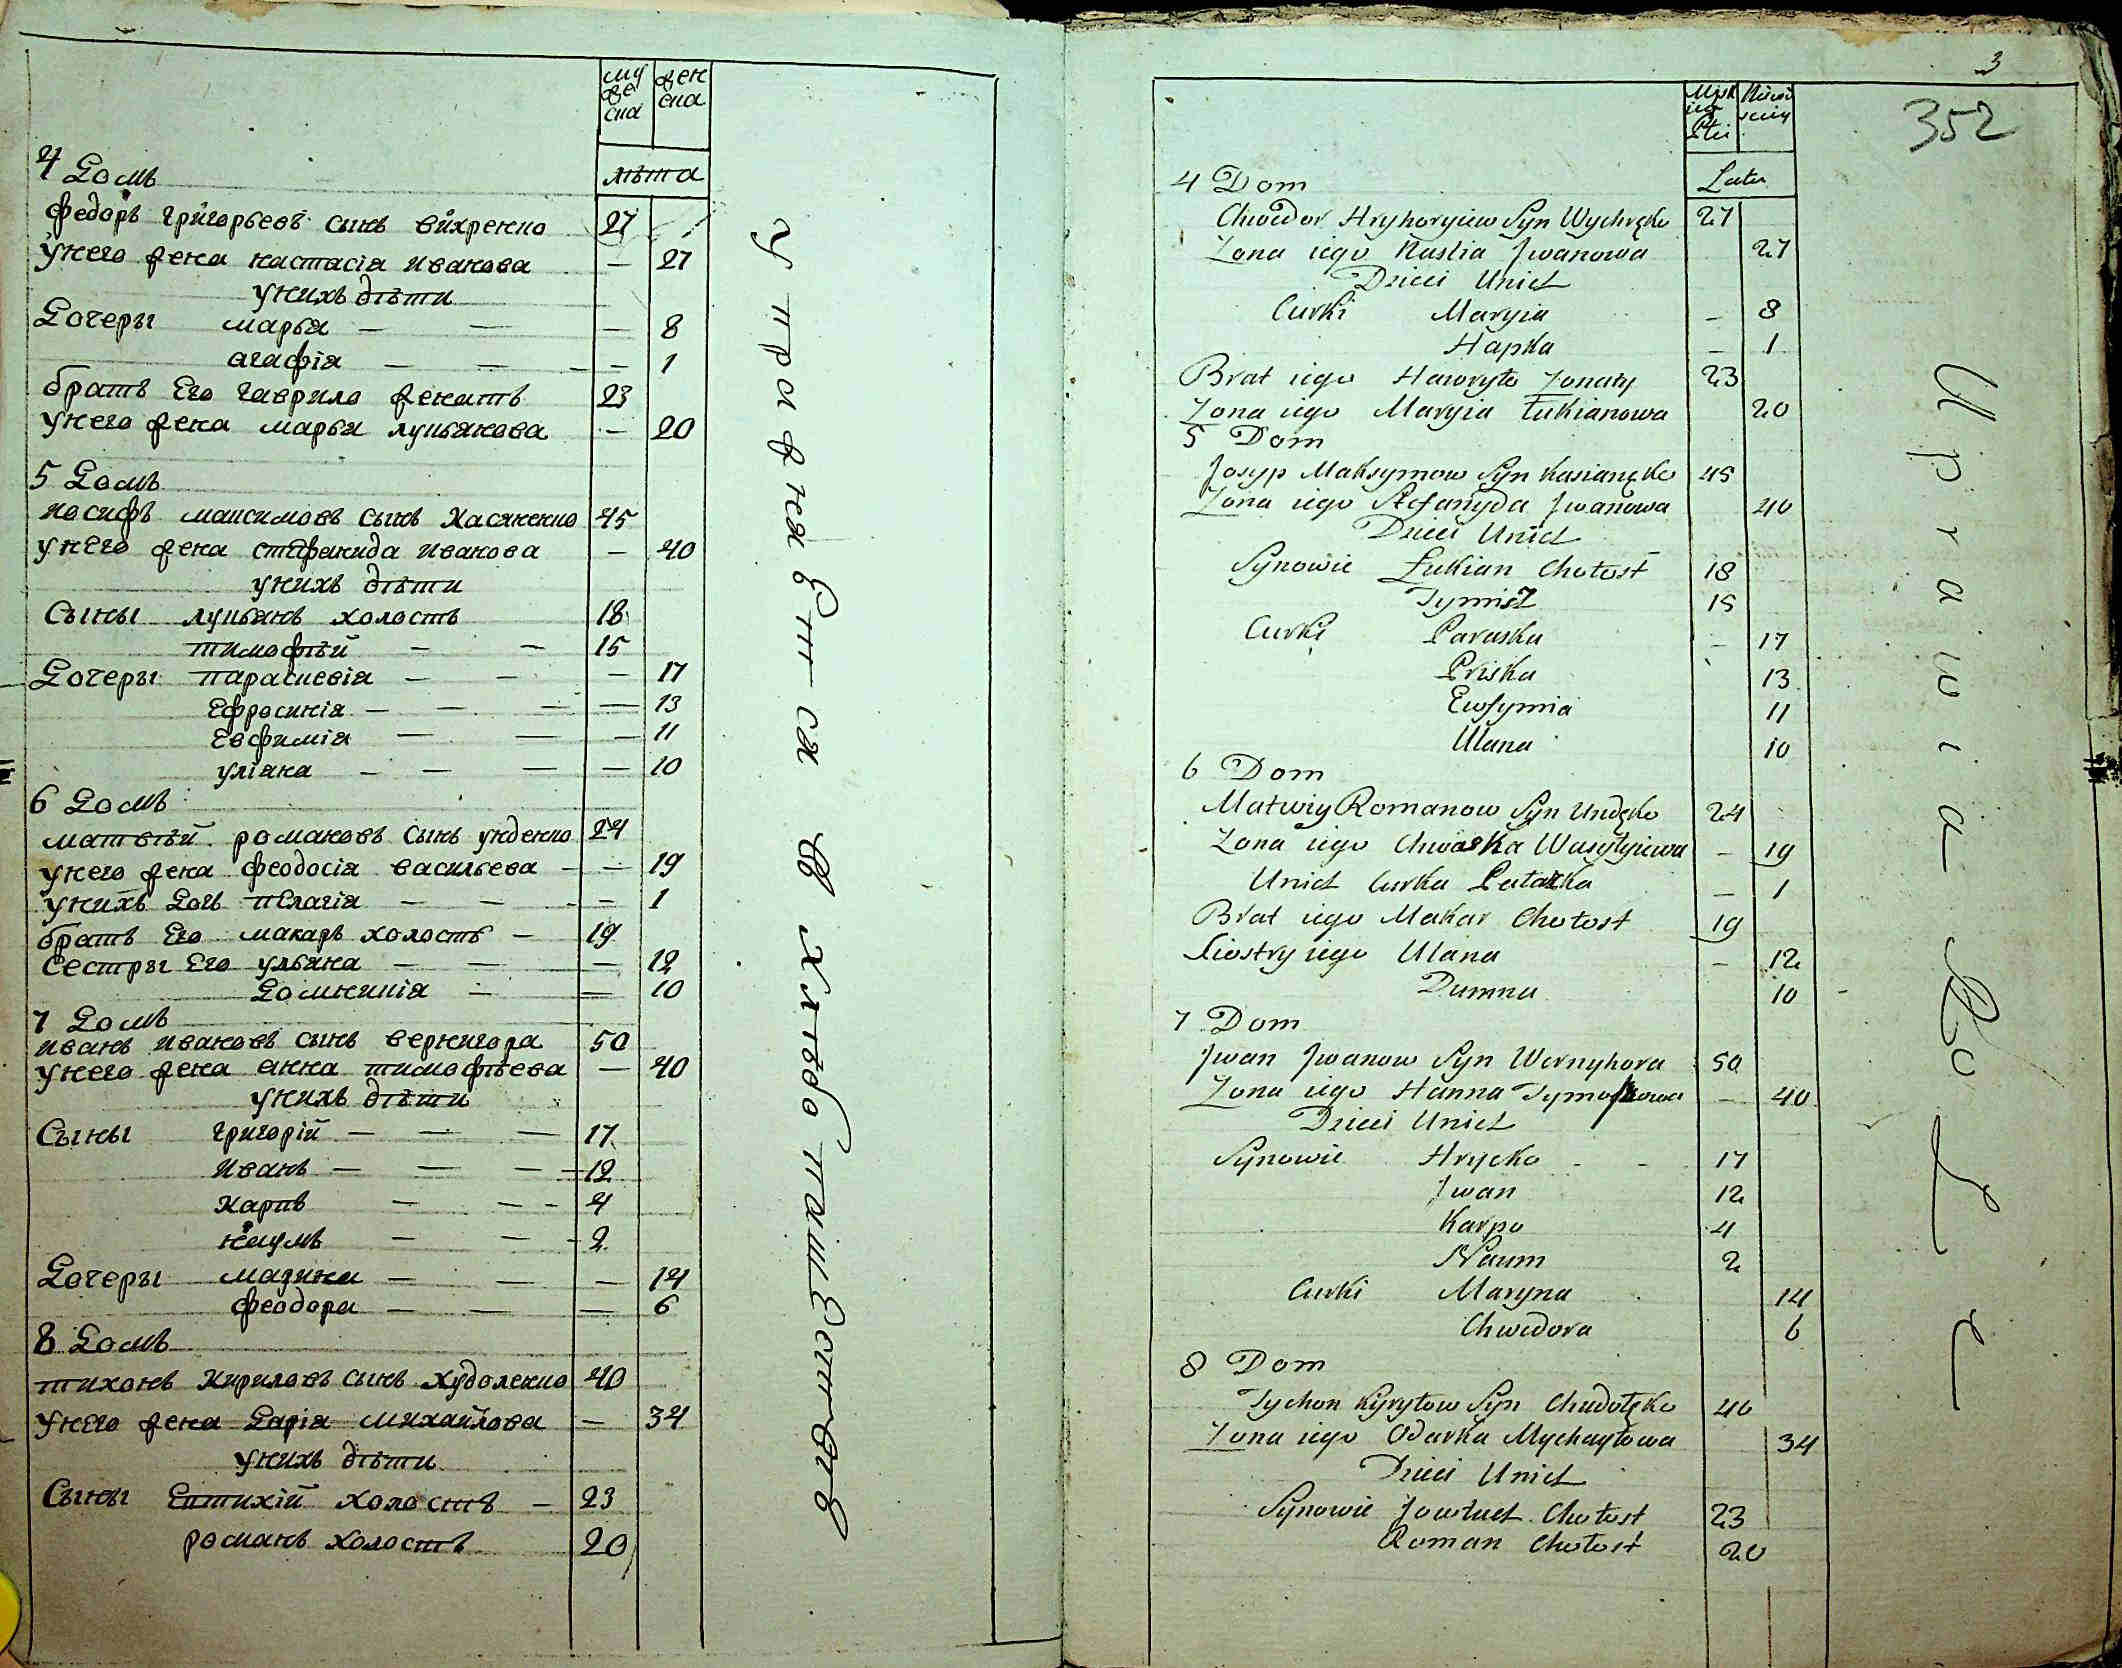 му
же
ска
жен
ска
лѣта
4 Домъ
Федоръ Григорьевъ сынъ Вихренко 27
у него жена Настасiя Иванова — 27
у нихъ дѣти
Дочеры Марья — — — 8
Агафiя — — — 1
братъ Его Гаврило женатъ 23
у него жена Марья Лукьянова — 20
5 Домъ
Иосифъ Максимовъ сынъ Касяненко 45
у него жена Стефанида Иванова — 40
у нихъ дѣти
Сыны Лукьянъ холостъ 18
Тимофѣй — — 15
Дочеры Параскевiя — — — 17
Ефросинiя — — — — 13
Евфимiя — — — 11
Улiяна — — — — 10
6 Домъ
Матвѣй Романовъ сынъ Унденко 24
у него жена Феодосiя Васильева — — 19
у нихъ Дочь Пелагiя — — — 1
братъ Его Макаръ холостъ — 19
Сестры Его Ульяна — — — 12
Домникiя — — 10
7 Домъ
Иванъ Ивановъ сынъ Вернигора 50
у него жена Анна Тимофѣева — 40
у нихъ дѣти
Сыны Григорiй — — — 17
Иванъ — — — 12
Карпъ — — - 4
Наумъ — — - 2
Дочеры Марина — — — 14
Феодора — — — 6
8 Домъ
Тихонъ Кириловъ сынъ Худоленко 40
у него жена Дарiя Михайлова — 34
у нихъ дѣти
Сыны Евтихiй холостъ — 23
Романъ холостъ 20
УпражняЕтся въ хлѣбопашЕствѣ
3
352
Lata
4 Dom
Chwedor Hryhoryiew Syn Wychręko 27
Zona iego Nastia Jwanowa 27
Dzieci Unich
Curki Maryia – 8
Hapka – 1
Brat iego Hawryło Zonaty 23
Zona iego Maryia Łukianowa 20
5 Dom
Josyp Maksymow Syn Kasianęko 45
Zona iego Stefanyda Jwanowa 40
Dzieci Unich
Synowie Łukian Chołost 18
Tymisz 15
Curki Paraska – 17
Priska 13
Ewfymia 11
Ulana 10
6 Dom
Matwiy Romanow Syn Undęko 24
Zona iego Chwaska Wasylyiewa – 19
Unich Curka Pałażka – 1
Brat iego Makar Chołost 19
Siostry iego Ulana – 12
Dumna 10
7 Dom
Jwan Jwanow Syn Wernyhora 50
Zona iego Hanna – 40
Dzieci Unich
Synowie Hrycko - - 17
Jwan 12
Karpo 4
Naum 2
Curki Maryna 14
Chwedora 6
8 Dom
Tychon Kyryłow Syn Chudołęko 40
Zona iego Odarka Mychayłowa 34
Dzieci Unich
Synowie Jowtuch Chołost 23
Roman Chołost 20
Uprawia Rolę